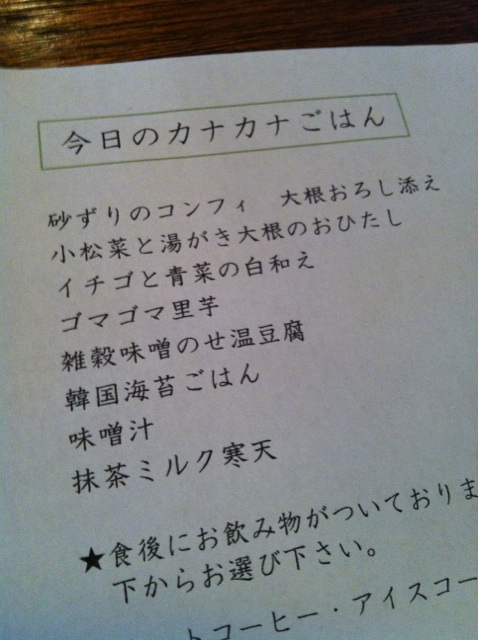 今日のカナカナごはん
砂ずりのコンフィ　大根おろし添え
小松菜と湯がき大根のおひたし
イチゴと青菜の白和え
ゴマゴマ里芋
雑穀味噌のせ温豆腐
韓国海苔ごはん
味噌汁
抹茶ミルク寒天
★食後にお飲み物がついておりま
下からお選び下さい。
トコーヒー・アイスコー